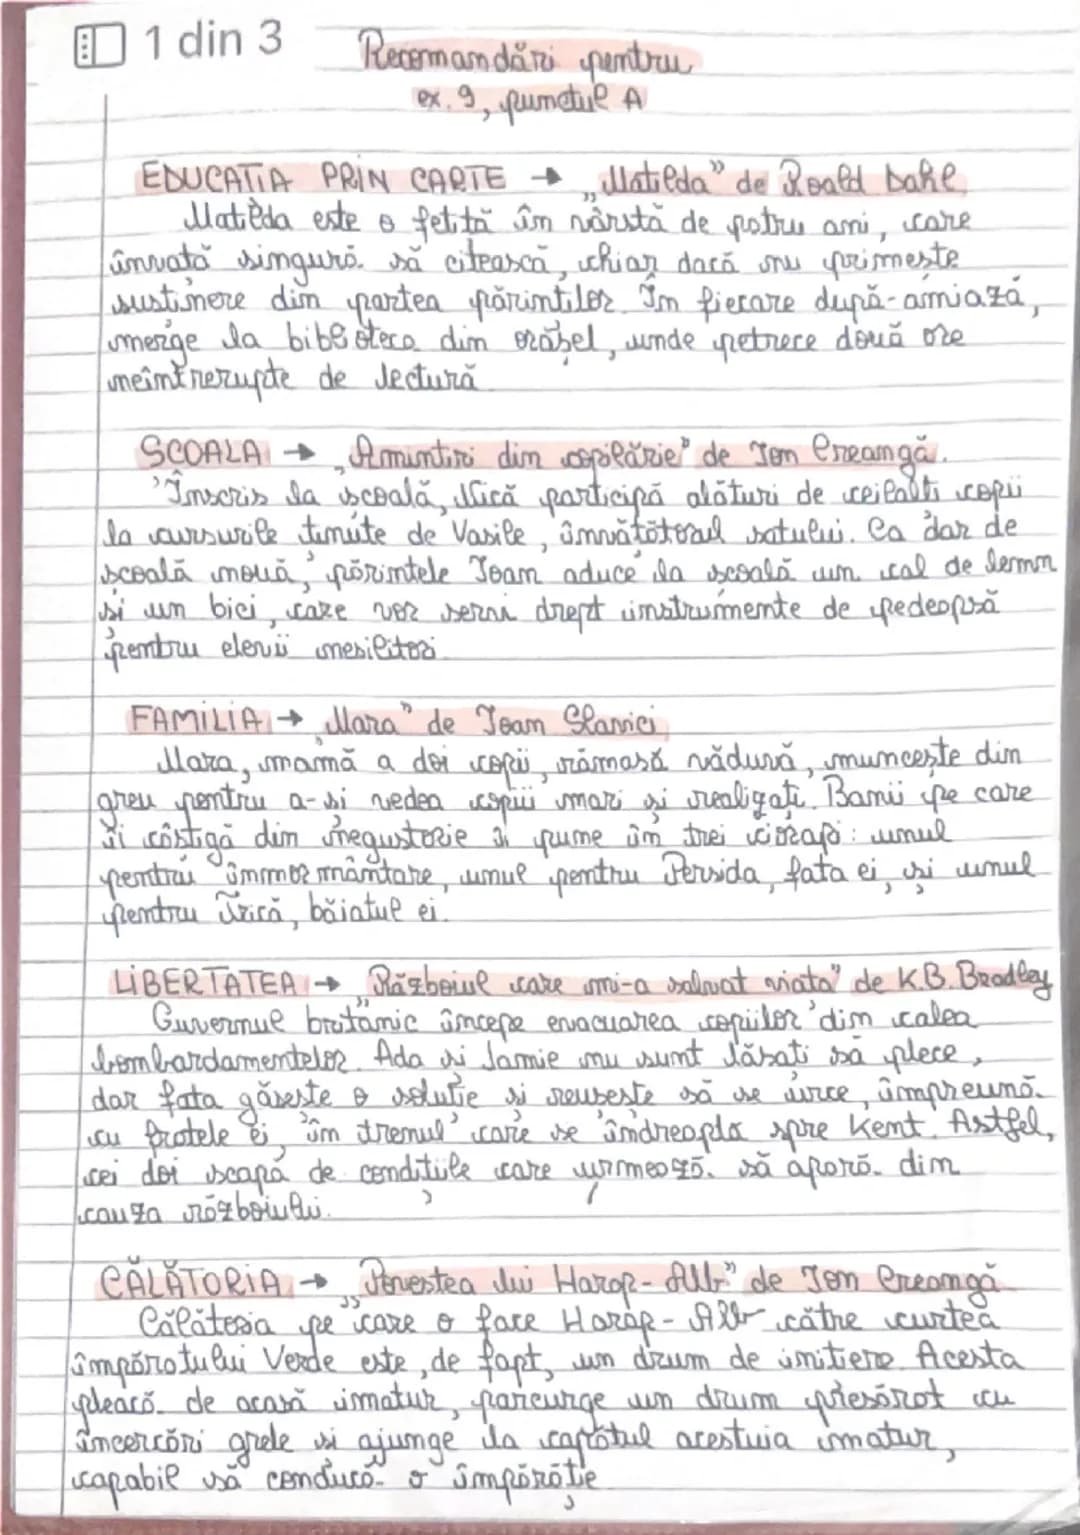 1 din 3
Recomandări pentru
ex. 9, punctul A
EDUCAȚIA PRIN CARTE → „Matilda” de Roald Dahl
Matilda este o fetiță în vârstă de patru ani, care
învață singură să citească, chiar dacă nu primește
susținere din partea părinților. În fiecare după-amiază,
merge la biblioteca din orășel, unde petrece două ore
neîntrerupte de lectură
ȘCOALA → „Amintiri din copilărie” de Ion Creangă.
Înscris la școală, Nică participă alături de ceilalți copii
la cursurile ținute de Vasile, învățătorul satului. Ca dar de
școală nouă, părintele Ioan aduce la școală un cal de lemn
și un bici, care vor servi drept instrumente de pedeapsă
pentru elevii nesilitori
FAMILIA → „Mara” de Ioan Slavici
Mara, mamă a doi copii, rămasă văduvă, muncește din
greu pentru a-și vedea copiii mari și realizați. Banii pe care
îi câștigă din negustorie îi pune în trei ciorapi: unul
pentru înmormântare, unul pentru Persida, fata ei, și unul
pentru Trică, băiatul ei.
LIBERTATEA → „Războiul care mi-a salvat viața” de K.B. Bradley
Guvernul britanic începe evacuarea copiilor din calea
bombardamentelor. Ada și Jamie nu sunt lăsați să plece,
dar fata găsește o soluție și reușește să se urce, împreună
cu fratele ei, în trenul care se îndreaptă spre Kent. Astfel,
cei doi scapă de condițiile care urmează să apară din
cauza războiului.
CĂLĂTORIA → „Povestea lui Harap-Alb” de Ion Creangă
Călătoria pe care o face Harap-Alb către curtea
împăratului Verde este, de fapt, un drum de inițiere. Acesta
pleacă de acasă imatur, parcurge un drum presărat cu
încercări grele și ajunge la capătul acestuia matur,
capabil să conducă o împărăție